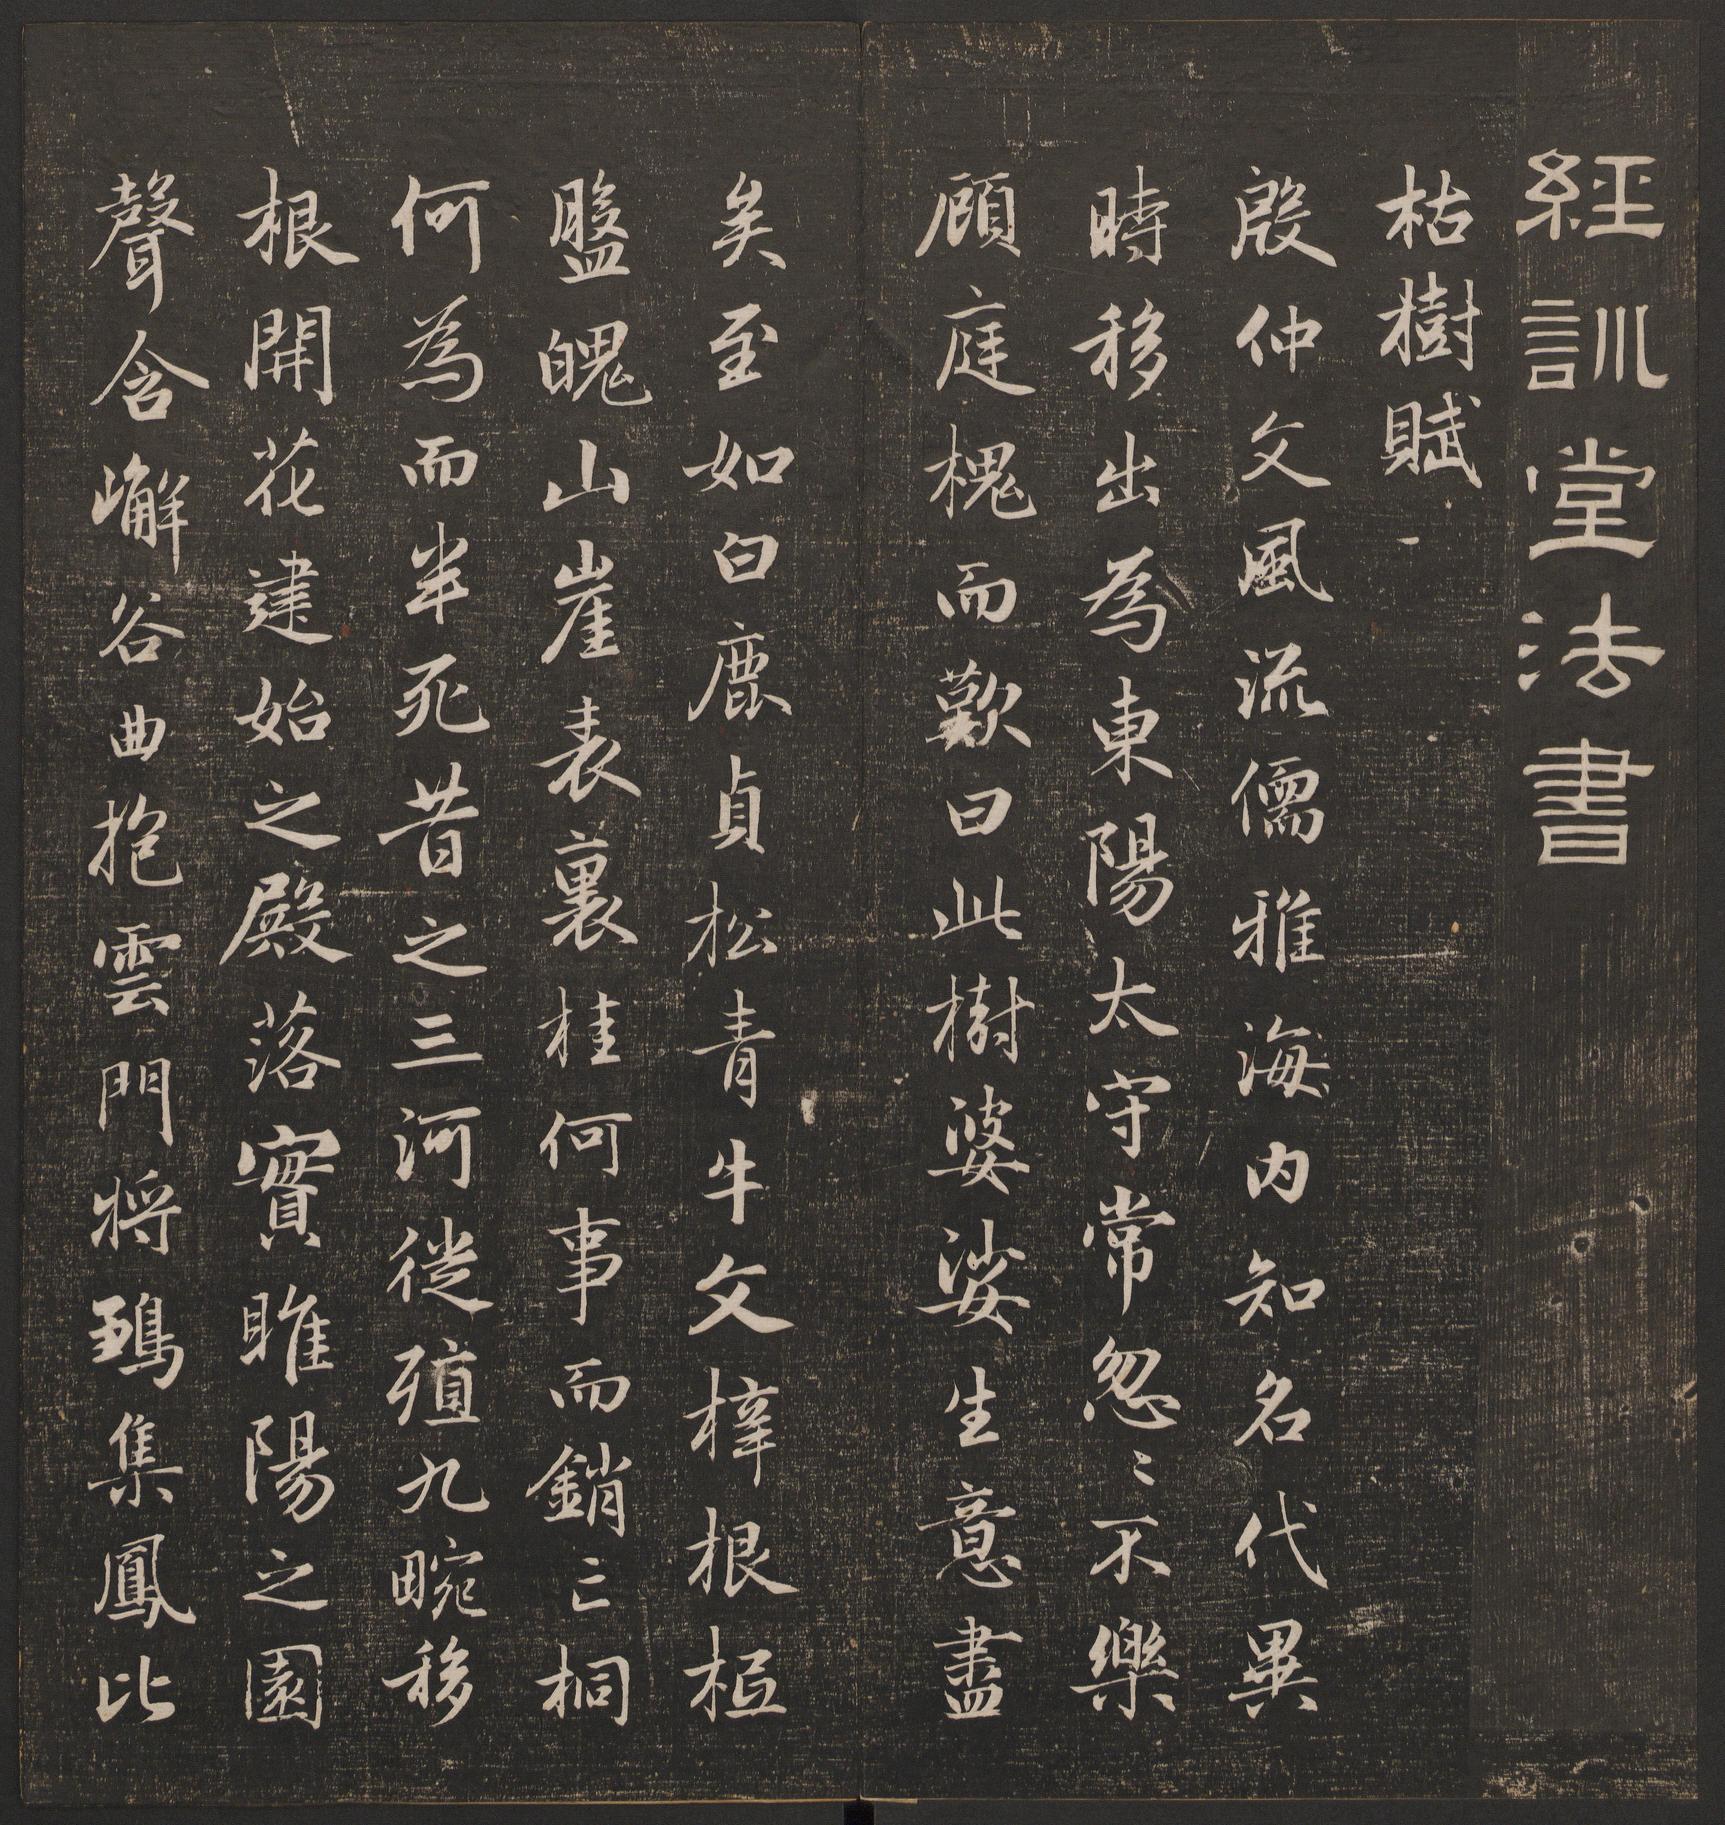 經訓堂法書
枯樹賦
殷仲文風流儒雅海内知名代異
時移出為東陽太守常忽〻不樂
顧庭槐而歎曰此樹婆娑生意盡
矣至如白鹿貞松青牛文梓根柢
盤魄山崖表裏桂何事而銷亡桐
何為而半死昔之三河徙殖九畹移
根開花建始之殿落實睢陽之園
聲含嶰谷曲抱雲門将鵄集鳳比